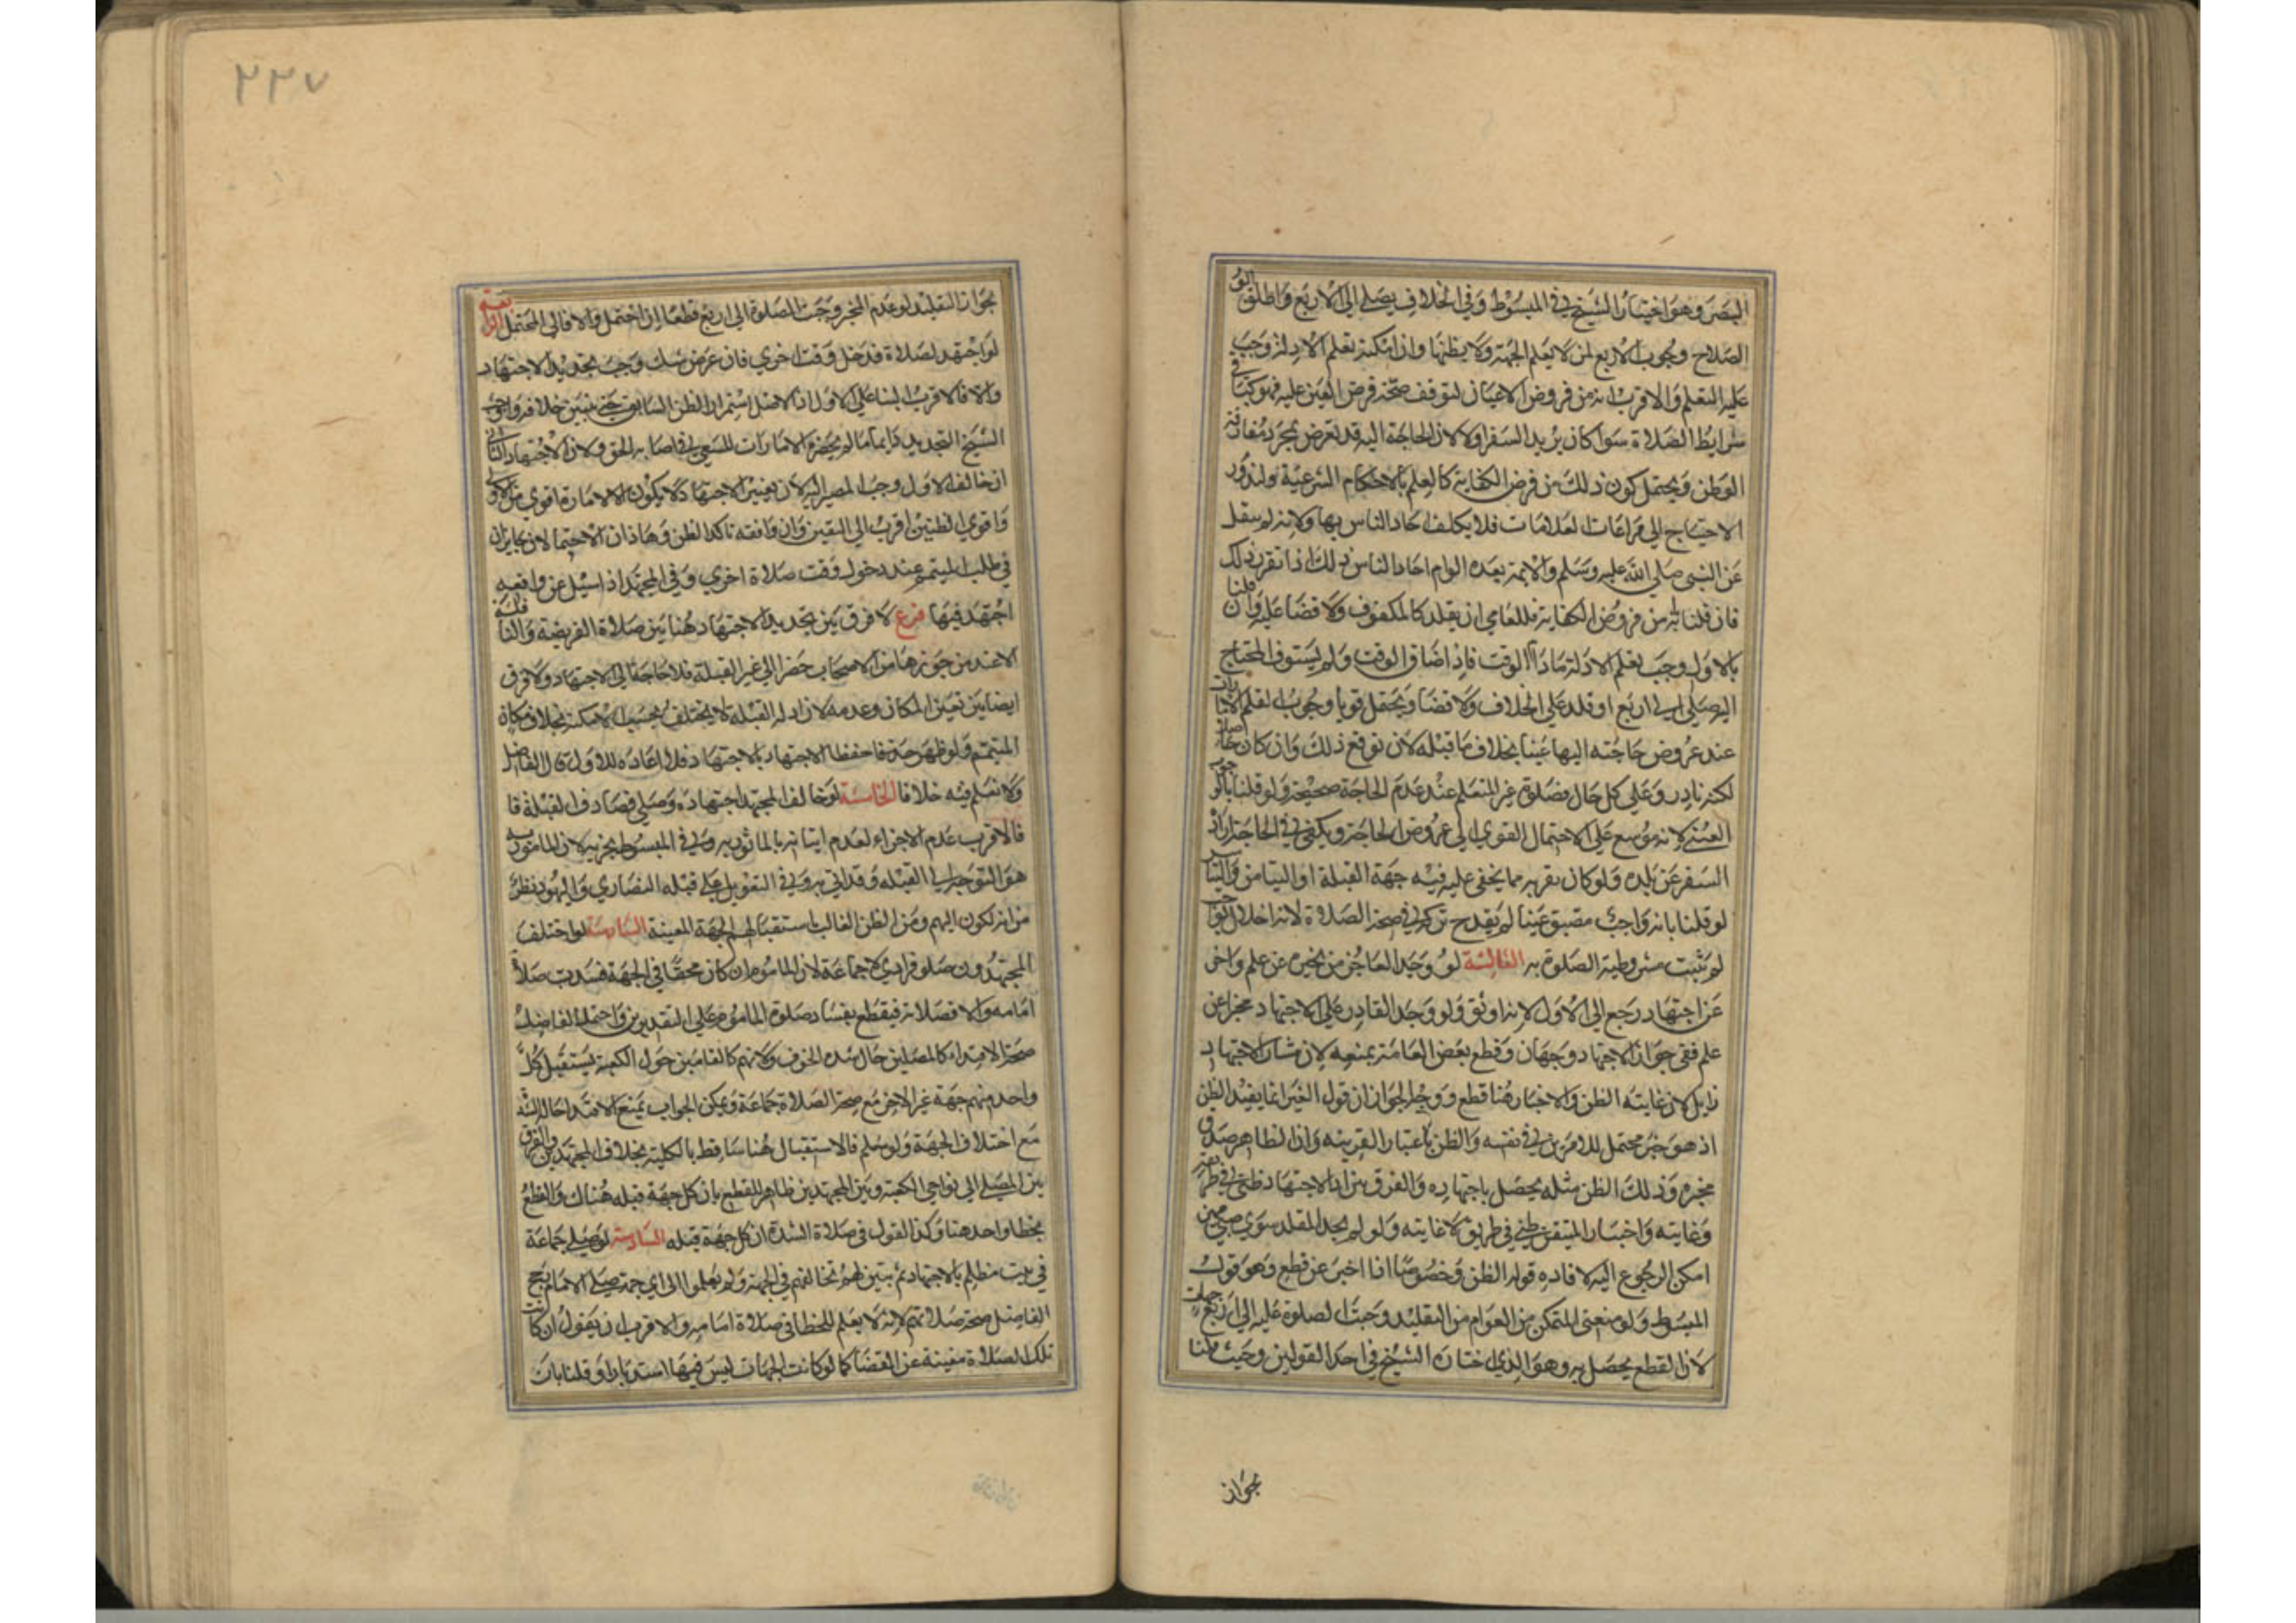 البصر وهو اختيار الشيخ في المبسوط وفي الخلاف يصلي الى الاربع واطلق ابو
الصلاح وجوب الاربع لمن لا يعلم الجهة ولا يظنها وان امكنه تعلم الادلة وجب
عليه التعلم والاقرب انه من فروض الاعيان لتوقف صحة فرض العين عليه فهو كباقي
شرايط الصلاة سوا كان يريد السفر اولا لان الحاجة اليه قد تعرض بمجرد مفارقة
الوطن ويحتمل كون ذلك من فرض الكفاية كالعلم بالاحكام الشرعية ولندور
الاحتياج الى مراعات العلامات فلا يكلف احاد الناس بها ولانه لم ينقل
عن النبي صلي الله عليه وسلم والايمة بعده الزام احاد الناس بذلك اذا تقرر ذلك
فان قلنا انه من فروض الكفاية فللعامي ان يقلد كالمكفوف ولا قضا عليه وان قلنا
بالاول وجب تعلم الادلة مادام الوقت فاذا ضاق الوقت ولم يستوف المحتاج
اليه صلي الى اربع او قلد علي الخلاف ولا قضا ويحتمل قويا وجوب تعلم الامارات
عند عروض حاجته اليها عينا بخلاف ما قبله لان توقع ذلك وان كان حاصلا
لكنه نادر وعلي كل حال فصلوة غير المتعلم عند عدم الحاجة صحيحة ولو قلنا بالوجوب
العيني لانه موسع علي الاحتمال القوي الي عروض الحاجة ويكفي في الحاجة ارادة
السفر عن بلده ولو كان بقربه مما يخفي عليه فيه جهة القبلة او التيامن والتياسر
لو قلنا بانه واجب مضيق عينا لم يقدح تركه في صحة الصلاة لانه اخلال بواجب
لم يثبت مشروطية الصلوة به الثالثة لو وجد العاجز من يخبره عن علم واخر
عن اجتهاد رجع الى الاول لانه اوثق ولو وجد القادر علي الاجتهاد مخبرا عن
علم ففي جواز الاجتهاد وجهان وقطع بعض العامة بمنعه لان مثار الاجتهاد
زايل لان غايته الظن والاخبار هنا قطع ووجه الجواز ان قول الغير انما يفيد الظن
اذ هو خبر محتمل للامرين في نفسه والظن باعتبار القرينه وان الظاهر صدق
مخبره وذلك الظن مثله يحصل باجتهاده والفرق بين ان الاجتهاد ظني في طريقه
وغايته واخبار المتيقن ظني في طريق لا غايته ولو لم يجد المقلد سوي صبي مميز
امكن الرجوع اليه لافادة قوله الظن وخصوصا اذا اخبر عن قطع وهو قول
المبسوط ولو منعنى المتمكن من العوام من التقليد وجبت الصلوة عليه الى اربع جهات
لان القطع يحصل به وهو الذي اختاره الشيخ في احد القولين وحيث قلنا
بجواز
٢٢٧
بجواز التقليد لو عدم المخبر وجبت الصلوة الى اربع قطعا ان احتمل والا فالى المحتمل الرابعة
لو اجتهد لصلاة فدخل وقت اخري فان عرض شك وجب تجديد الاجتهاد
والا فالاقرب البنا علي الاول اذ الاصل استمرار الظن السابق حتى يتبين خلافه واوجب
الشيخ التجديد دايما ما لم يحضره الامارات للسعي في اصابه الحق ولان الاجتهاد الثاني
ان خالف الاول وجب المصير اليه لان تغيير الاجتهاد لا يكون الا لامارة اقوي من الاولى
واقوي الظنين اقرب الى اليقين وان وافقه تاكد الظن وهاذان الاحتمالان جايزان
في طلب المتيمم عند دخول وقت صلاة اخري وفي المجتهد اذ اسيل عن واقعه
اجتهد فيها فرع لا فرق بين تجديد الاجتهاد هنا بين صلاة الفريضه والنافلة
الا عند من جوزها من الاصحاب حضرا الي غير القبلة فلا حاجة الى الاجتهاد ولا فرق
ايضا بين تعين المكان وعدمه لان ادلة القبله لا يختلف بحسب الامكنة بخلاف مكان
المتيمم ولو ظهر جهة فاحفظ الاجتهاد بالاجتهاد فلا اعاده للاول قال الفاضل
ولا نعلم فيه خلافا الخامسة لو خالف المجتهد اجتهاده وصلي فصادف القبلة فا
فالاقرب عدم الاجزاء لعدم اتيانه بالماثور به وفي المبسوط يجزيه لان المامور به
هو التوجه الى القبله وقد اتي به وفي التعويل على قبله النصاري واليهود نظر
من انه لكون اليهم ومن الظن الغالب باستقبالهم الجهة المعينة السادسة لو اختلف
المجتهدون صلو فرادي لا جماعة لان الماموم ان كان محقا في الجهة فسدت صلاة
امامه والا فصلاته فيقطع بفساد صلوة الماموم علي التقديرين واحتمل الفاضل
صحة الاقتداء كالمصلين حال شده الخوف ولانهم كالقامين حول الكعبة يستقبل كل
واحد منهم جهة غير الاخر مع صحة الصلاة جماعة ويمكن الجواب بمنع الاقتدا حالة الشدة
مع اختلاف الجهة ولو سلم فالاستقبال هنا ساقط بالكلية بخلاف المجتهدين والفرق
بين المصلي الى نواحي الكعبة وبين المجتهدين ظاهر للقطع بان كل جهة قبله هناك والقطع
بخطا واحد هنا وكذا القول في صلاة الشدة ان كل جهة قبله السادسة لو صلي جماعة
في بيت مظلم بالاجتهاد ثم تبين لهم تخالفهم في الجهة ولم يعلموا الى اي جهة صلي الامام رجح
الفاضل صحة صلاتهم لانه لا يعلم للخطا في صلاة امامه والاقرب ان يقول ان كانت
تلك الصلاة مغنية عن القضا كما لو كانت الجهات ليس فيها استدبارا وقلنا بان